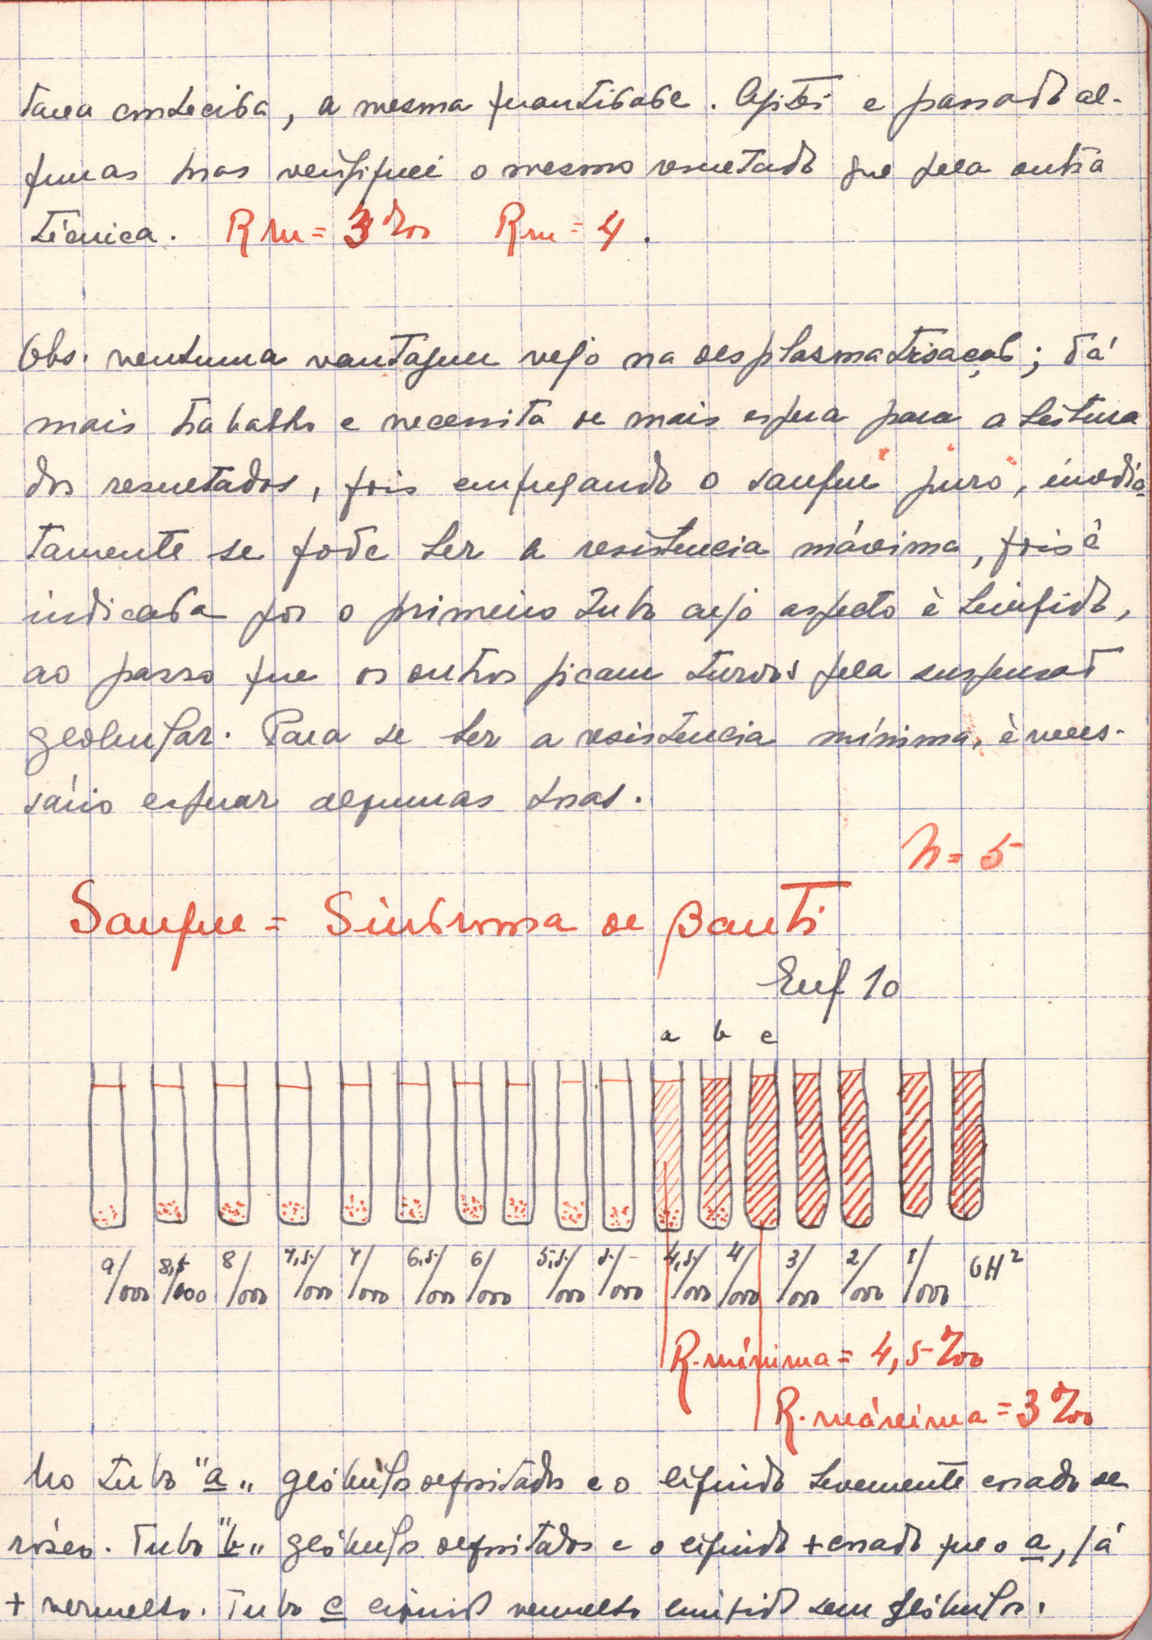 tarea conhecida, a mesma quantidade. Agitei e passado al-
gumas horas verifiquei o mesmo resultado que pela outra
técnica. Rm = 3‰ Rm = 4.
Obs. nenhuma vantagem vejo na desplasmatisação; dá
mais trabalho e necessita de mais espera para a leitura
dos resultados, pois empregando o sangue "puro", imedia-
tamente se pode ler a resistencia máxima, pois é
indicada por o primeiro tubo cujo aspecto è limpido,
ao passo que os outros ficam turvos pela suspensão
globular. Para se ler a resistencia mínima, è neces-
sário esperar algumas horas.
n = 5
Sangue = Sindroma de Banti
Enf 10
a b c
9/000 8,5/000 8/000 7,5/000 7/000 6,5/000 6/000 5,5/000 5/000 4,5/000 4/000 3/000 2/000 1/000 OH²
R. mínima = 4,5‰
R. máxima = 3‰
No tubo "a" glóbulos depositados e o liquido levemente corado de
róseo. Tubo "b" glóbulos depositados e o liquido + corado que o a, já
+ vermelho. Tubo c liquido vermelho limpido sem glóbulos.